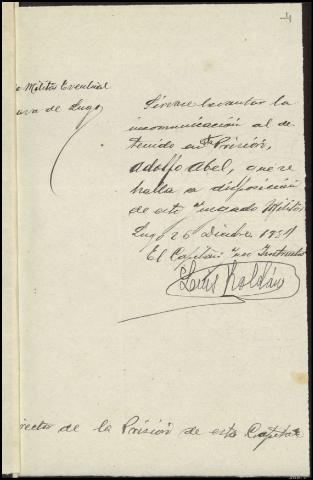 4
o Militar Eventual
aza de Lugo
Sírvase levantar la
incomunicación al de-
tenido en esta Prisión,
Adolfo Abel, que se
halla a disposición
de este Juzgado Militar
Lugo 26 Dicbre 1934
El Capitán Juez Instructor
Luis Roldán
irector de la Prisión de esta Capital